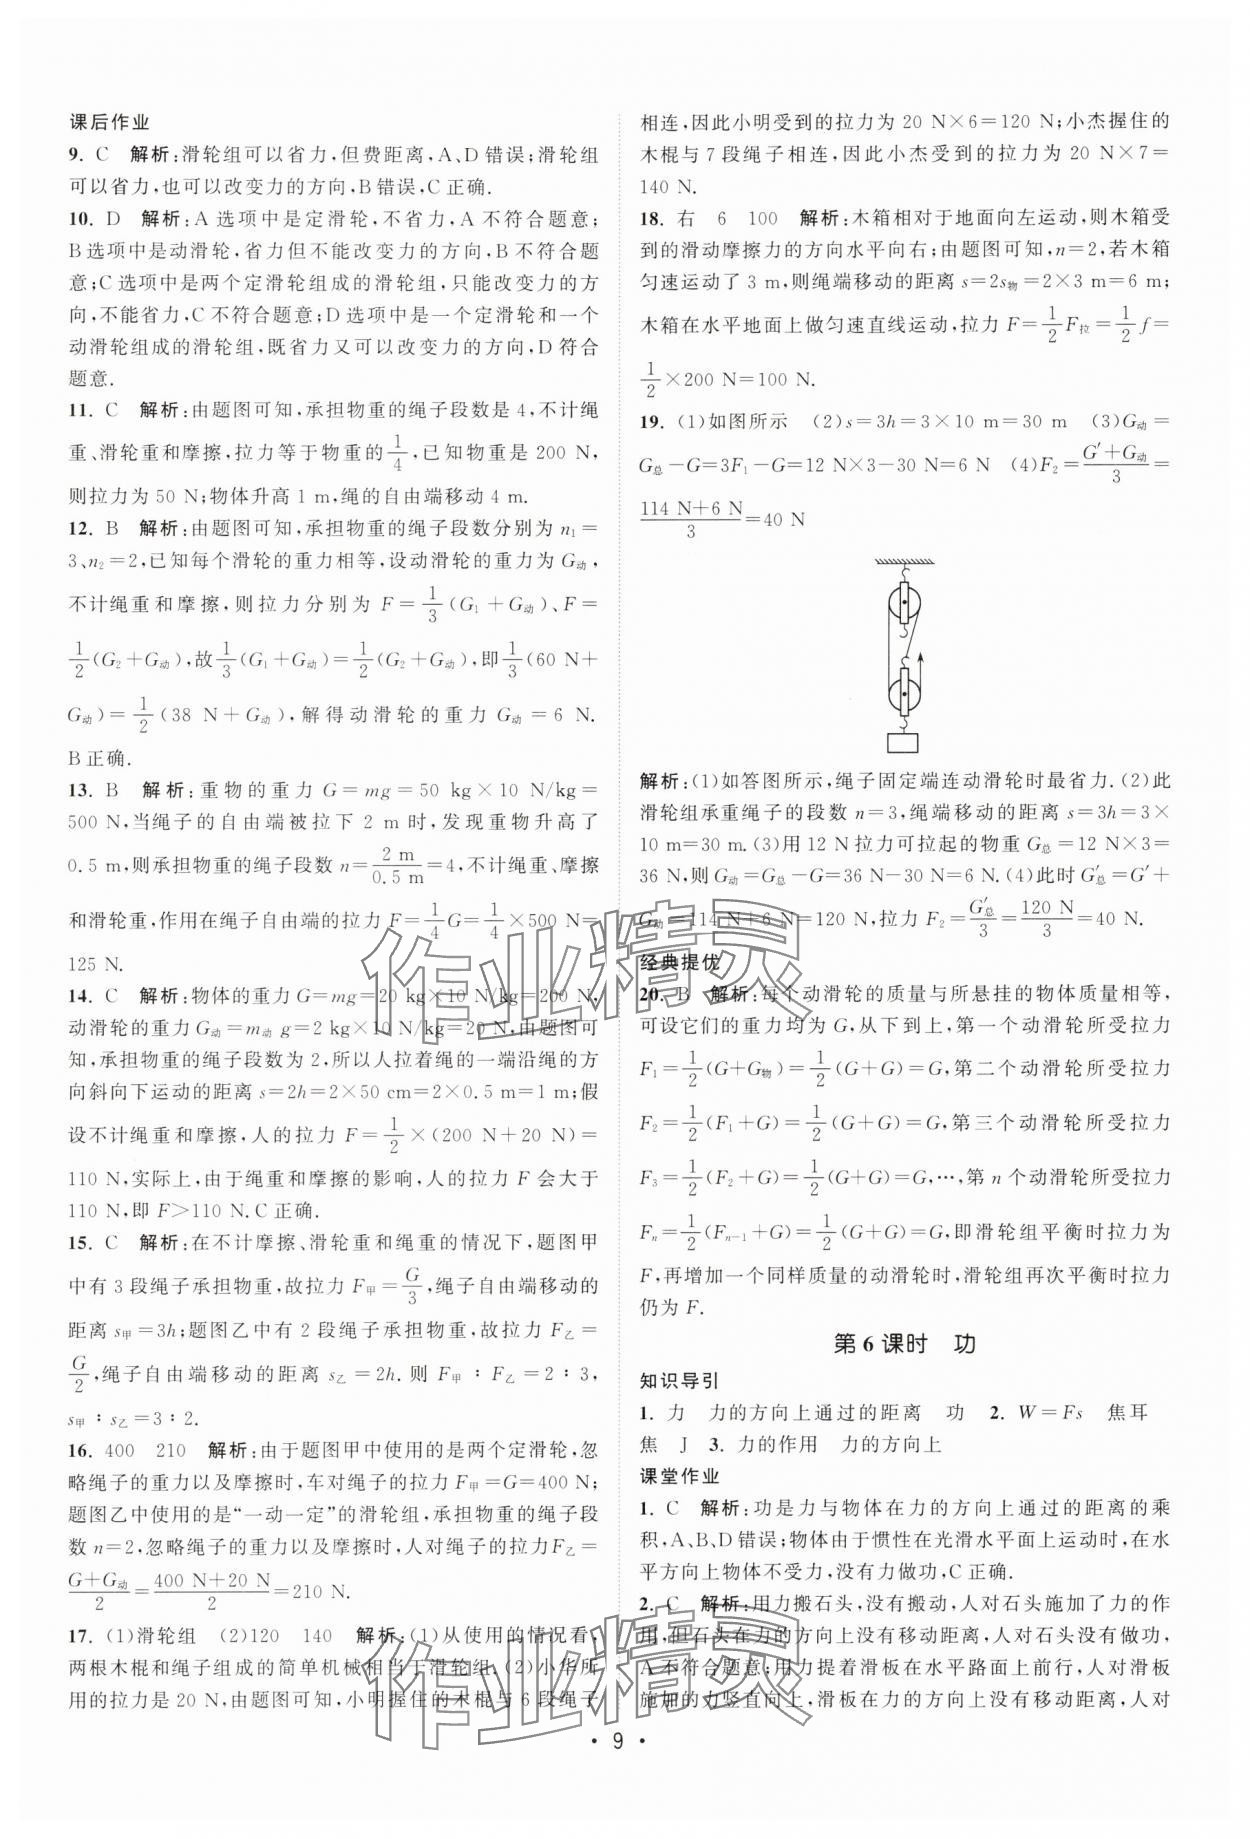 课后作业
9. C 解析:滑轮组可以省力,但费距离,A、D错误;滑轮组
可以省力,也可以改变力的方向,B错误,C正确.
10. D 解析:A选项中是定滑轮,不省力,A不符合题意;
B选项中是动滑轮,省力但不能改变力的方向,B不符合题
意;C选项中是两个定滑轮组成的滑轮组,只能改变力的方
向,不能省力,C不符合题意;D选项中是一个定滑轮和一个
动滑轮组成的滑轮组,既省力又可以改变力的方向,D符合
题意.
11. C 解析:由题图可知,承担物重的绳子段数是4,不计绳
重、滑轮重和摩擦,拉力等于物重的1/4,已知物重是200 N,
则拉力为50 N;物体升高1 m,绳的自由端移动4 m.
12. B 解析:由题图可知,承担物重的绳子段数分别为n₁=
3、n₂=2,已知每个滑轮的重力相等,设动滑轮的重力为G动,
不计绳重和摩擦,则拉力分别为F=1/3(G₁+G动)、F=
1/2(G₂+G动),故1/3(G₁+G动)=1/2(G₂+G动),即1/3(60 N+
G动)=1/2(38 N+G动),解得动滑轮的重力G动=6 N.
B正确.
13. B 解析:重物的重力G=mg=50 kg×10 N/kg=
500 N,当绳子的自由端被拉下2 m时,发现重物升高了
0.5 m,则承担物重的绳子段数n=2 m/0.5 m=4,不计绳重、摩擦
和滑轮重,作用在绳子自由端的拉力F=1/4G=1/4×500 N=
125 N.
14. C 解析:物体的重力G=mg=20 kg×10 N/kg=200 N,
动滑轮的重力G动=m动g=2 kg×10 N/kg=20 N,由题图可
知,承担物重的绳子段数为2,所以人拉着绳的一端沿绳的方
向斜向下运动的距离s=2h=2×50 cm=2×0.5 m=1 m;假
设不计绳重和摩擦,人的拉力F=1/2×(200 N+20 N)=
110 N,实际上,由于绳重和摩擦的影响,人的拉力F会大于
110 N,即F>110 N.C正确.
15. C 解析:在不计摩擦、滑轮重和绳重的情况下,题图甲
中有3段绳子承担物重,故拉力F甲=G/3,绳子自由端移动的
距离s甲=3h;题图乙中有2段绳子承担物重,故拉力F乙=
G/2,绳子自由端移动的距离s乙=2h.则F甲:F乙=2:3,
s甲:s乙=3:2.
16. 400 210 解析:由于题图甲中使用的是两个定滑轮,忽
略绳子的重力以及摩擦时,车对绳子的拉力F甲=G=400 N;
题图乙中使用的是“一动一定”的滑轮组,承担物重的绳子段
数n=2,忽略绳子的重力以及摩擦时,人对绳子的拉力F乙=
(G+G动)/2=(400 N+20 N)/2=210 N.
17. (1)滑轮组 (2)120 140 解析:(1)从使用的情况看,
两根木棍和绳子组成的简单机械相当于滑轮组.(2)小华所
用的拉力是20 N,由题图可知,小明握住的木棍与6段绳子
相连,因此小明受到的拉力为20 N×6=120 N;小杰握住的
木棍与7段绳子相连,因此小杰受到的拉力为20 N×7=
140 N.
18. 右 6 100 解析:木箱相对于地面向左运动,则木箱受
到的滑动摩擦力的方向水平向右;由题图可知,n=2,若木箱
匀速运动了3 m,则绳端移动的距离s=2s物=2×3 m=6 m;
木箱在水平地面上做匀速直线运动,拉力F=1/2F拉=1/2f=
1/2×200 N=100 N.
19. (1)如图所示 (2)s=3h=3×10 m=30 m (3)G动=
G总-G=3F₁-G=12 N×3-30 N=6 N (4)F₂=(G′+G动)/3=
(114 N+6 N)/3=40 N
解析:(1)如答图所示,绳子固定端连动滑轮时最省力.(2)此
滑轮组承重绳子的段数n=3,绳端移动的距离s=3h=3×
10 m=30 m.(3)用12 N拉力可拉起的物重G总=12 N×3=
36 N,则G动=G总-G=36 N-30 N=6 N.(4)此时G′总=G′+
G动=114 N+6 N=120 N,拉力F₂=G′总/3=120 N/3=40 N.
经典提优
20. B 解析:每个动滑轮的质量与所悬挂的物体质量相等,
可设它们的重力均为G,从下到上,第一个动滑轮所受拉力
F₁=1/2(G+G物)=1/2(G+G)=G,第二个动滑轮所受拉力
F₂=1/2(F₁+G)=1/2(G+G)=G,第三个动滑轮所受拉力
F₃=1/2(F₂+G)=1/2(G+G)=G,…,第n个动滑轮所受拉力
Fₙ=1/2(Fₙ₋₁+G)=1/2(G+G)=G,即滑轮组平衡时拉力为
F,再增加一个同样质量的动滑轮时,滑轮组再次平衡时拉力
仍为F.
第6课时 功
知识导引
1. 力 力的方向上通过的距离 功 2. W=Fs 焦耳
焦 J 3. 力的作用 力的方向上
课堂作业
1. C 解析:功是力与物体在力的方向上通过的距离的乘
积,A、B、D错误;物体由于惯性在光滑水平面上运动时,在水
平方向上物体不受力,没有力做功,C正确.
2. C 解析:用力搬石头,没有搬动,人对石头施加了力的作
用,但石头在力的方向上没有移动距离,人对石头没有做功,
A不符合题意;用力提着滑板在水平路面上前行,人对滑板
施加的力竖直向上,滑板在力的方向上没有移动距离,人对
· 9 ·
作业精灵
作业精灵